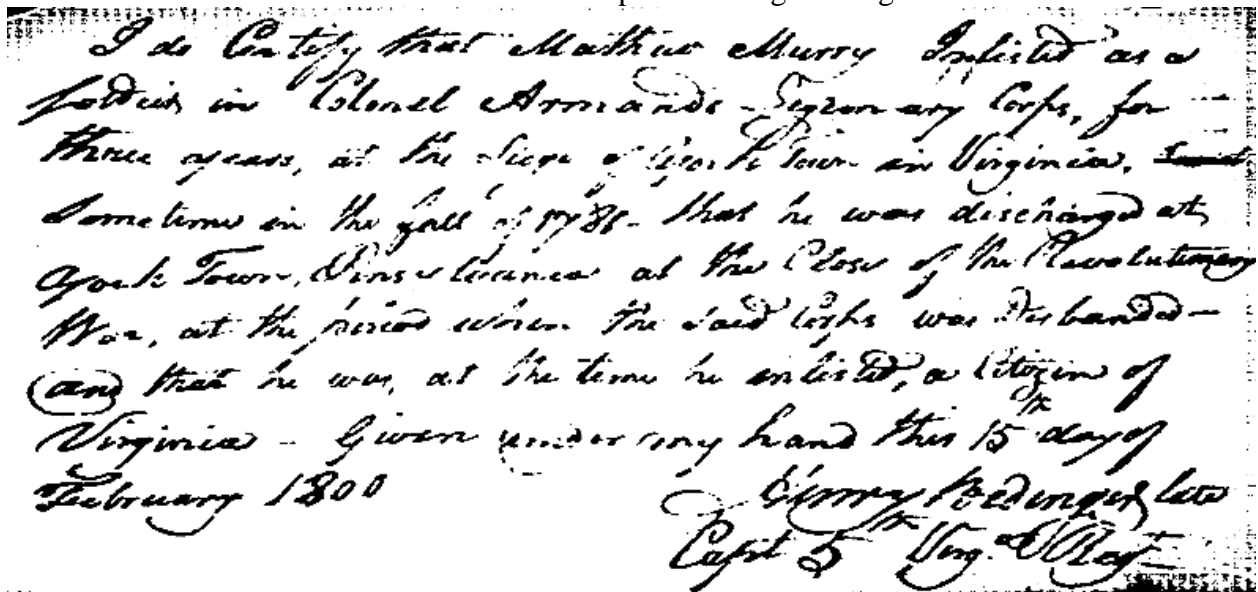 I do Certify that Mathew Murry Inlisted as a
soldier in Colonel Armands Legionary Corps, for
three years, at the Siege of York Town in Virginia,
Sometime in the fall of 1781 - that he was discharged at
York Town, Pinsylvania at the Close of the Revolutionary
War, at the period when the said Corps was Disbanded -
and that he was, at the time he inlisted, a Citizen of
Virginia - Given under my hand this 15th day of
February 1800
Henry Bedinger late
Capt 5th Virg. Regt